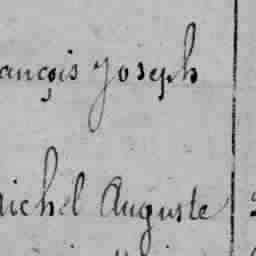 ançois Joseph
ichel Auguste